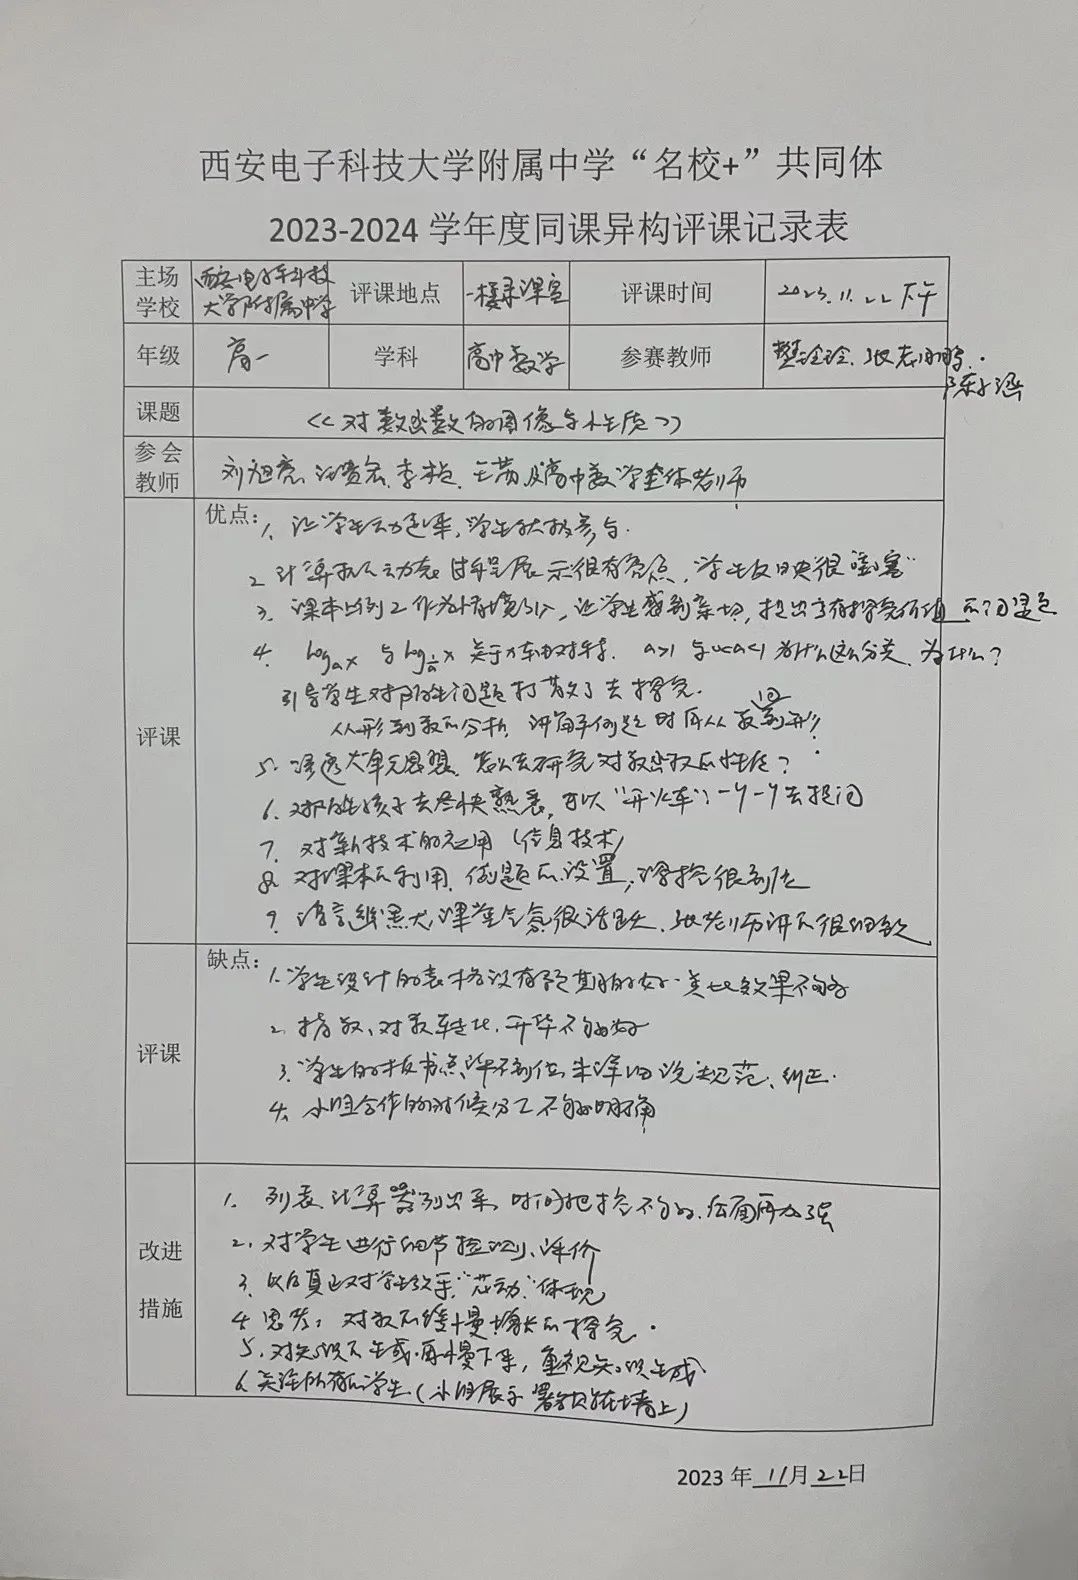 西安电子科技大学附属中学“名校+”共同体
2023-2024 学年度同课异构评课记录表
主场学校 西安电子科技大学附属中学 评课地点 一楼录课室 评课时间 2023.11.22 下午
年级 高一 学科 高中数学 参赛教师 樊玲玲、张志鹏、
陈子涵
课题 《对数函数的图像与性质》
参会教师 刘旭亮 李 王 及高中数学全体老师
评课 优点:
1. 让学生动起来,学生积极参与.
2 计算机动态过程展示很有亮点,学生反映很“震撼”
3. 课本上例2作为情境引入,让学生感到亲切,提出了有探究价值的问题
4. logax 与 log1/a x 关于x轴对称. a>1 与 0<a<1 为什么这么分类、为什么?
引导学生对陌生问题打散了去探究.
从形到数的分析, 讲解例题时再从数回到形!
5. 渗透大单元思想, 怎么去研究对数函数的性质?
6. 对陌生孩子去尽快熟悉,可以“开火车”,一个一个去提问
7. 对新技术的应用(信息技术)
8. 对课本的利用、例题的设置,调控很到位
9 语言 ,课堂气氛很活跃、张老师讲的很细致
评课 缺点:
1.学生设计的表格没有预期的好.类比效果不够好
2. 指数、对数转化.升华不够好
3. 学生的板书点评不到位,未详细说规范、纠正.
4. 小组合作的时候分工不够明确
改进措施
1. 列表 计算器列出来,时间把控不够,后面再加强
2. 对学生进行细节检测、评价
3. 以后真正对学生放手,“ 动”体现
4. 思考:对数的缓慢增长的探究.
5. 对知识的生成.再慢下来,重视知识生成
6. 关注所有的学生(小组展示 贴在墙上)
2023 年 11 月 22 日